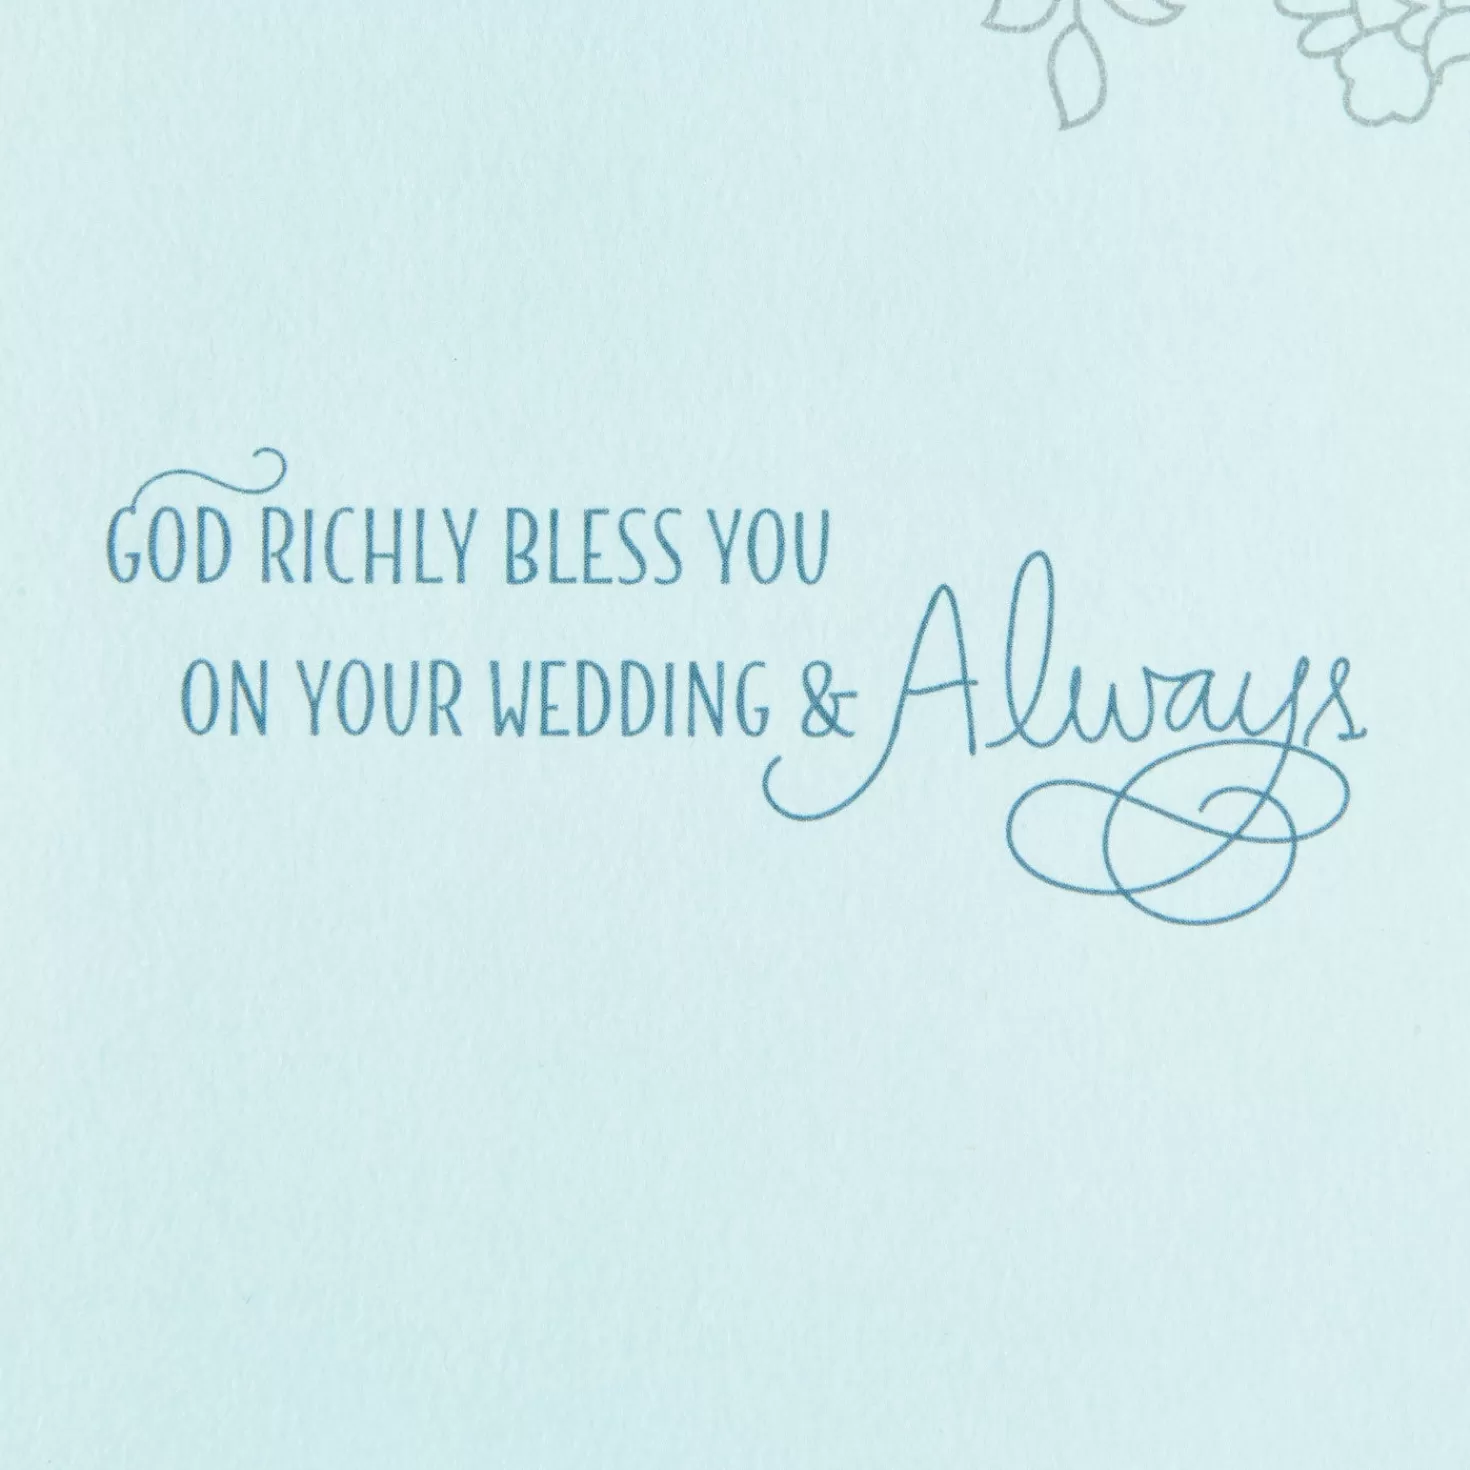 GOD RICHLY BLESS YOU
ON YOUR WEDDING & Always